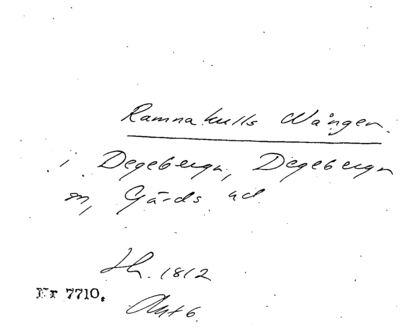 Ramnakulls Wången.
i Degeberga, Degeberga
sn, Gärds hd
Lh. 1812
Nr 7710.
Akt 6.